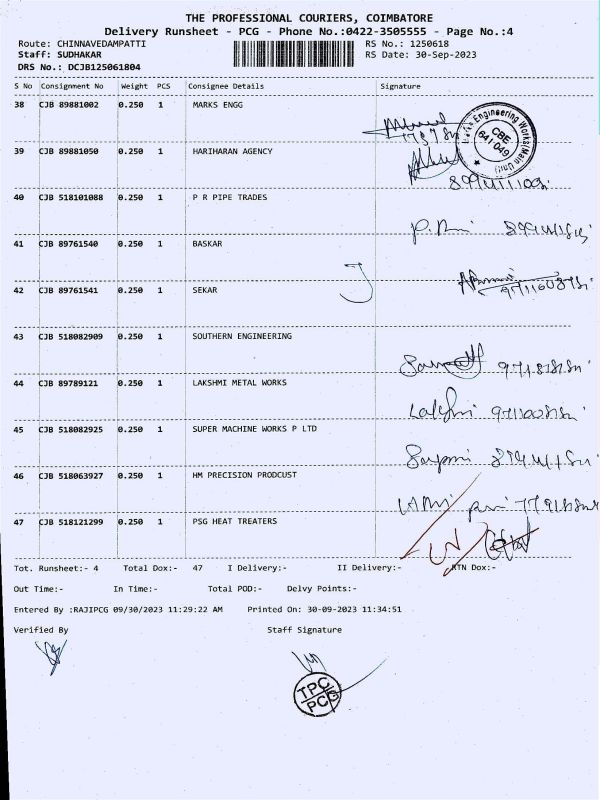 THE PROFESSIONAL COURIERS, COIMBATORE
Delivery Runsheet - PCG - Phone No.:0422-3505555 - Page No.:4
Route: CHINNAVEDAMPATTI RS No.: 1250618
Staff: SUDHAKAR RS Date: 30-Sep-2023
DRS No.: DCJB125061804
S No Consignment No Weight PCS Consignee Details Signature
38 CJB 89881002 0.250 1 MARKS ENGG
Engineering Works (Main Unit)
CBE
641 049
39 CJB 89881050 0.250 1 HARIHARAN AGENCY
40 CJB 518101088 0.250 1 P R PIPE TRADES
41 CJB 89761540 0.250 1 BASKAR
42 CJB 89761541 0.250 1 SEKAR
43 CJB 518082909 0.250 1 SOUTHERN ENGINEERING
44 CJB 89789121 0.250 1 LAKSHMI METAL WORKS
45 CJB 518082925 0.250 1 SUPER MACHINE WORKS P LTD
46 CJB 518063927 0.250 1 HM PRECISION PRODCUST
47 CJB 518121299 0.250 1 PSG HEAT TREATERS
Tot. Runsheet:- 4 Total Dox:- 47 I Delivery:- II Delivery:- RTN Dox:-
Out Time:- In Time:- Total POD:- Delvy Points:-
Entered By :RAJIPCG 09/30/2023 11:29:22 AM Printed On: 30-09-2023 11:34:51
Verified By Staff Signature
TPC
PCG